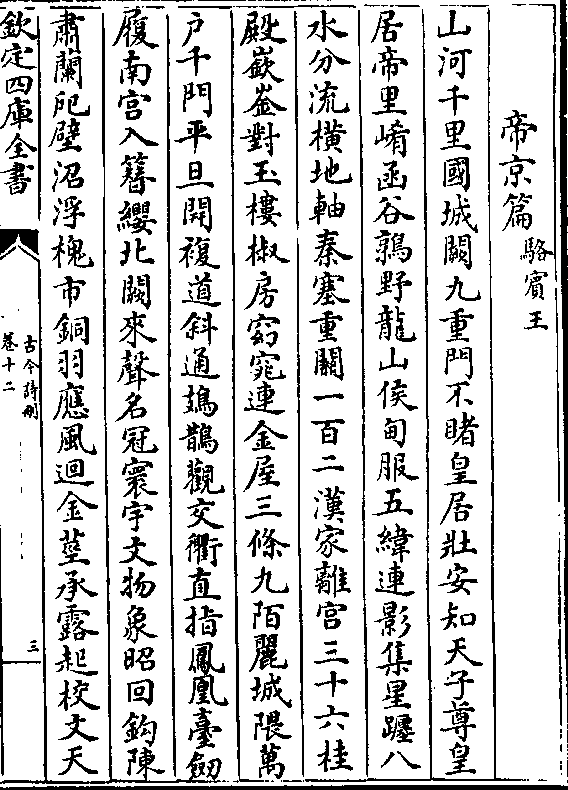 帝京篇 駱賓王
山河千里國城闕九重門不睹皇居壯安知天子尊皇
居帝里崤函谷鶉野龍山侯甸服五緯連影集星躔八
水分流橫地軸秦塞重關一百二漢家離宮三十六桂
殿嶔崟對玉樓椒房窈窕連金屋三條九陌麗城隈萬
户千門平旦開複道斜通鳷鵲觀交衢直指鳳凰臺劒
履南宮入簪纓北闕來聲名冠寰宇文物象昭回鈎陳
肅蘭戺壁沼浮槐市銅羽應風迴金莖承露起校文天
欽定四庫全書
古今詩刪
卷十二
三